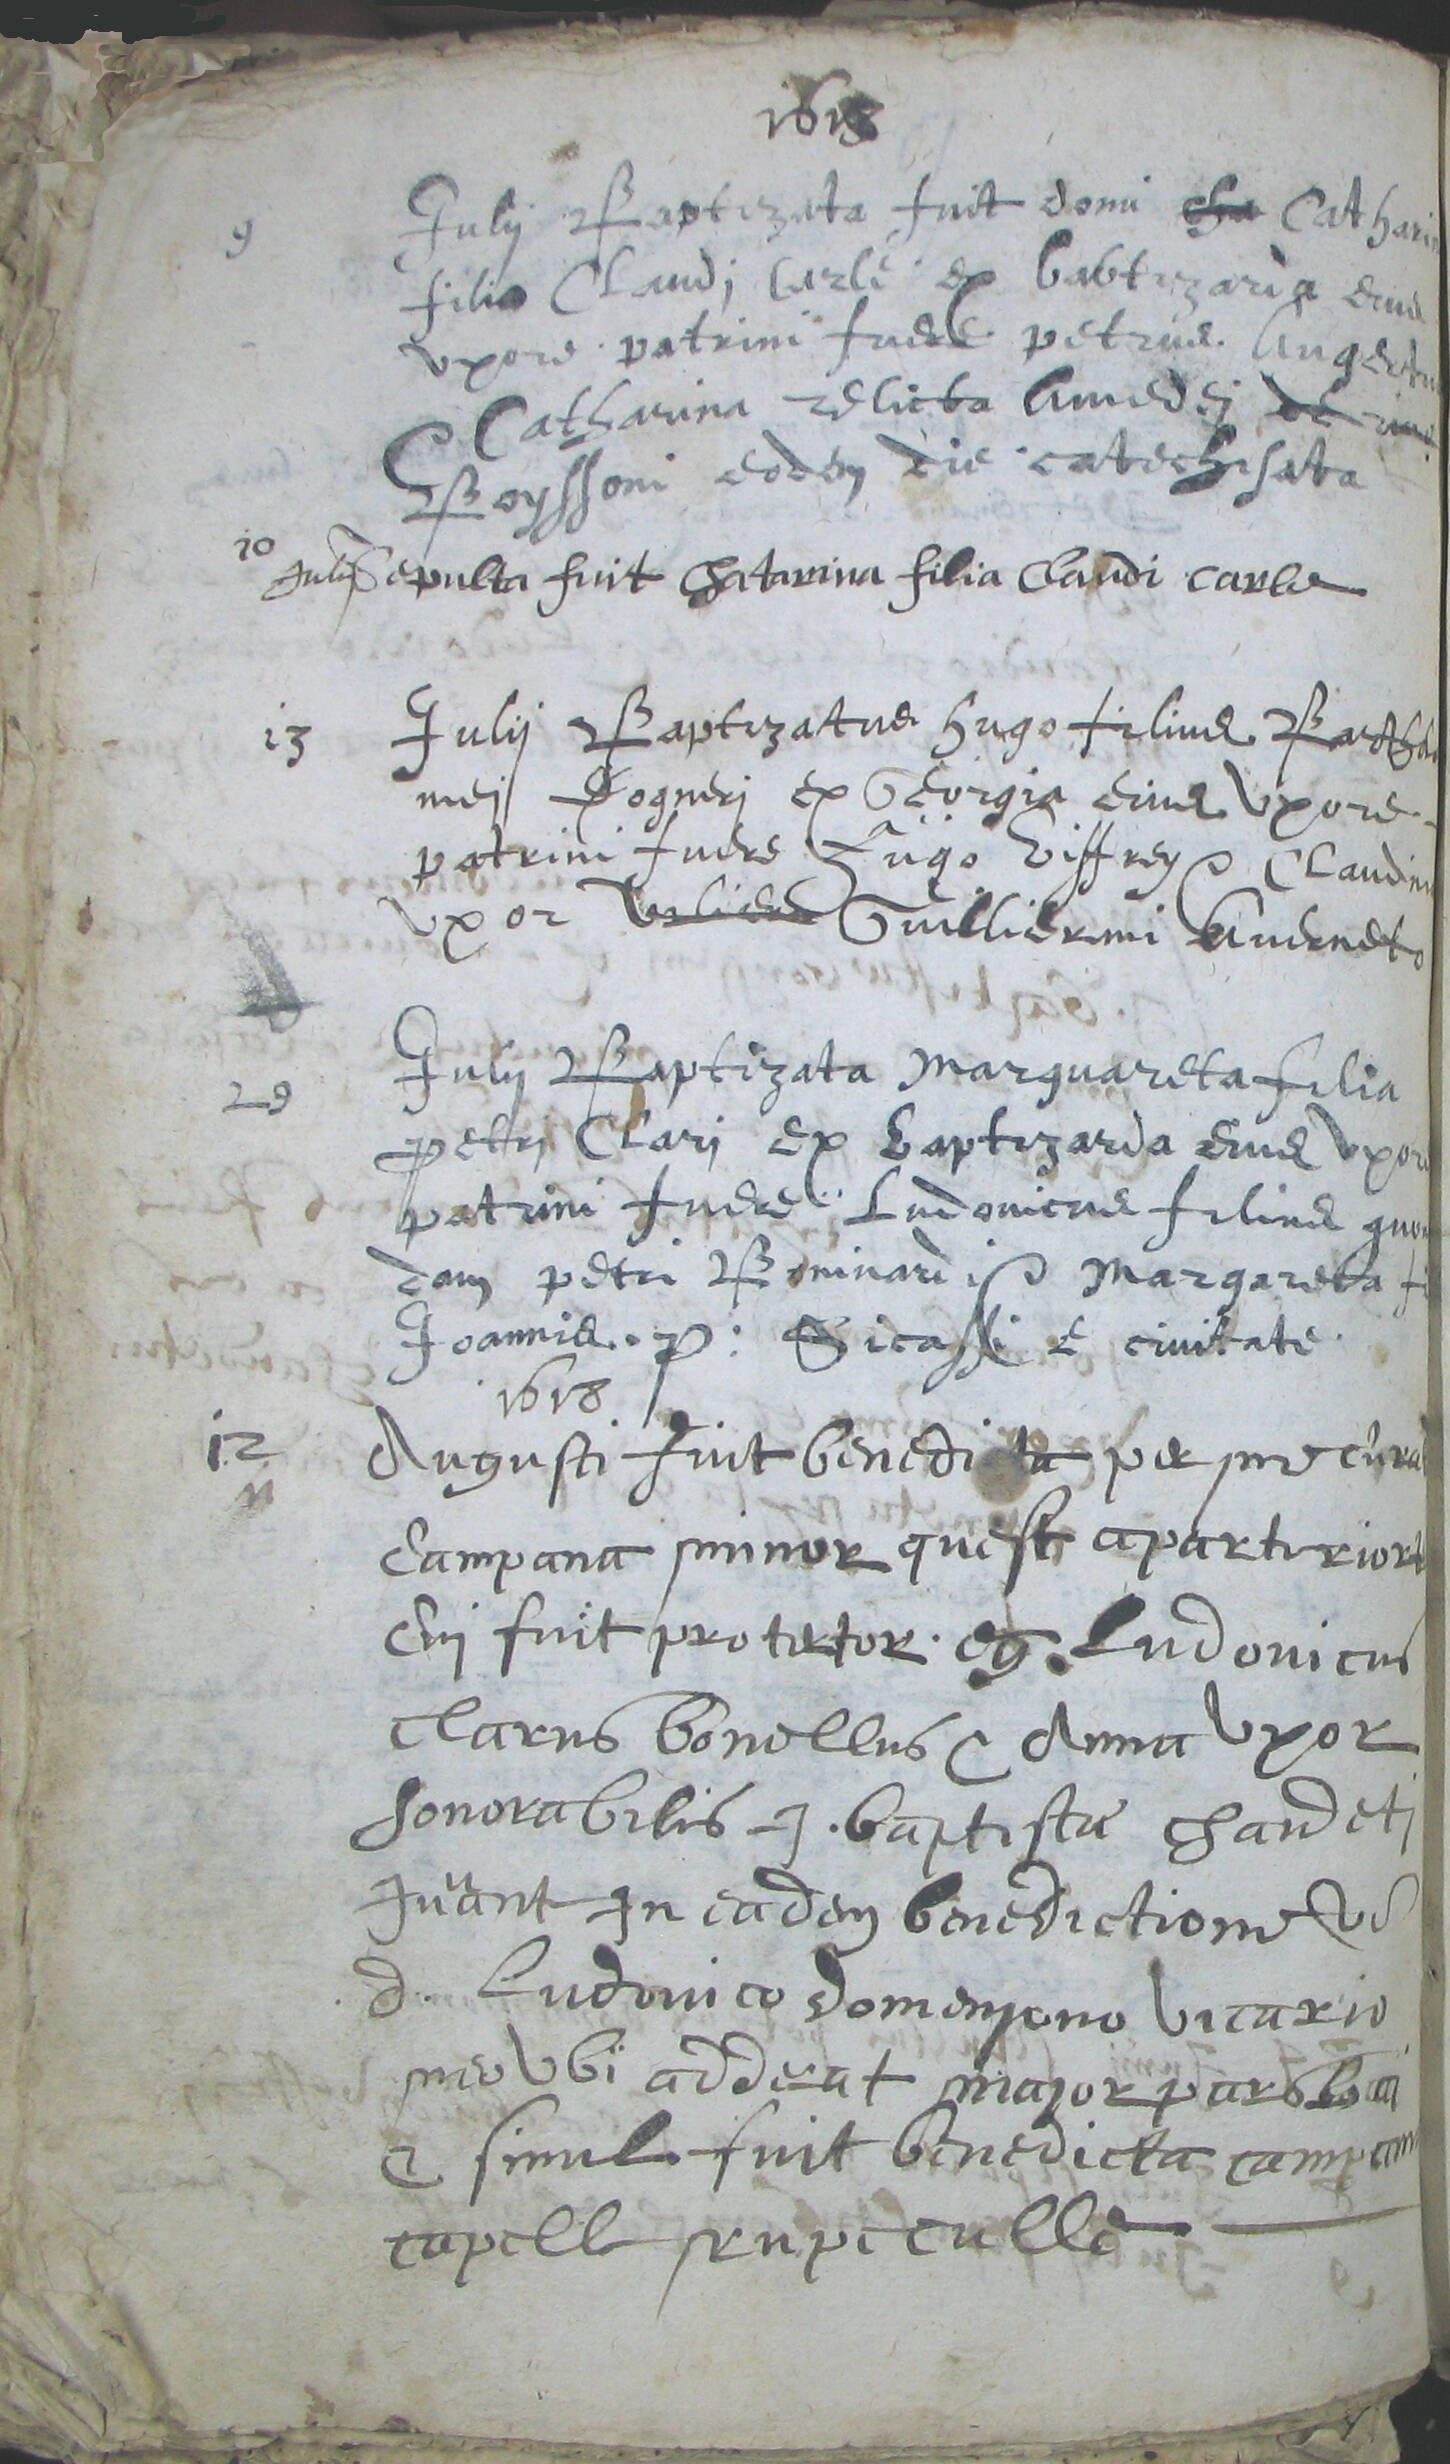 1618
9 Julij Baptizata fuit domi cha Catharin
filia Claudj Carle ex babtizarda eius
vxore patrini fuere petrus Auger
Catharina relicta Amedej de
Boyssoni eodem die catechisata
10 Julij Sepulta fuit Chatarina filia Claudi Carle
13 Julij Baptizatus hugo filius Bartholo
mej Dogneri ex Georgia eius vxore
patrini fuere Hugo Viffrey & Claudin
vxor Guillielmi Auerneto
29 Julij Baptizata Marguareta filia
petri Clari ex baptizarda eius vxore
patrini fuere Ludouicus filius quon
dam petri Boninardi & Margareta fi
Joannis p: Sicassi e ciuitate
1618
12 Augusti fuit benedicta per me cura
campana minor que est a parte
Cuj fuit protector eg. Ludouicus
clarus bonellus & Anna vxor
honorabilis J. baptistae chandetj
Juuant In eadem benedictione
d. Ludouico domenjono vicario
meo vbi adderat major pars loci
& simul fuit benedicta campan
capelle rupecullé